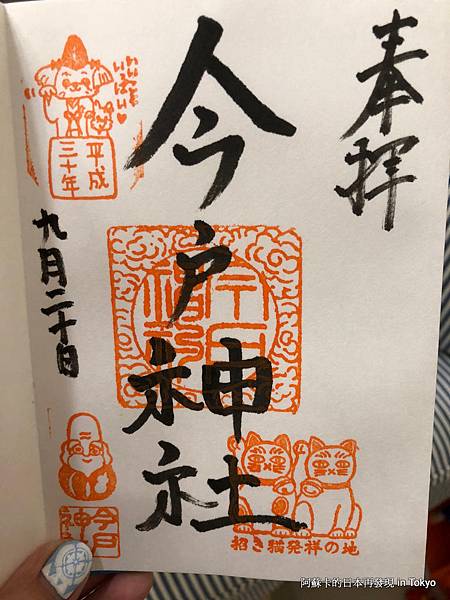 奉拝
今戸神社
平成
三十年
九月二十日
招き猫発祥の地
阿蘇卡的日本再發現 in Tokyo